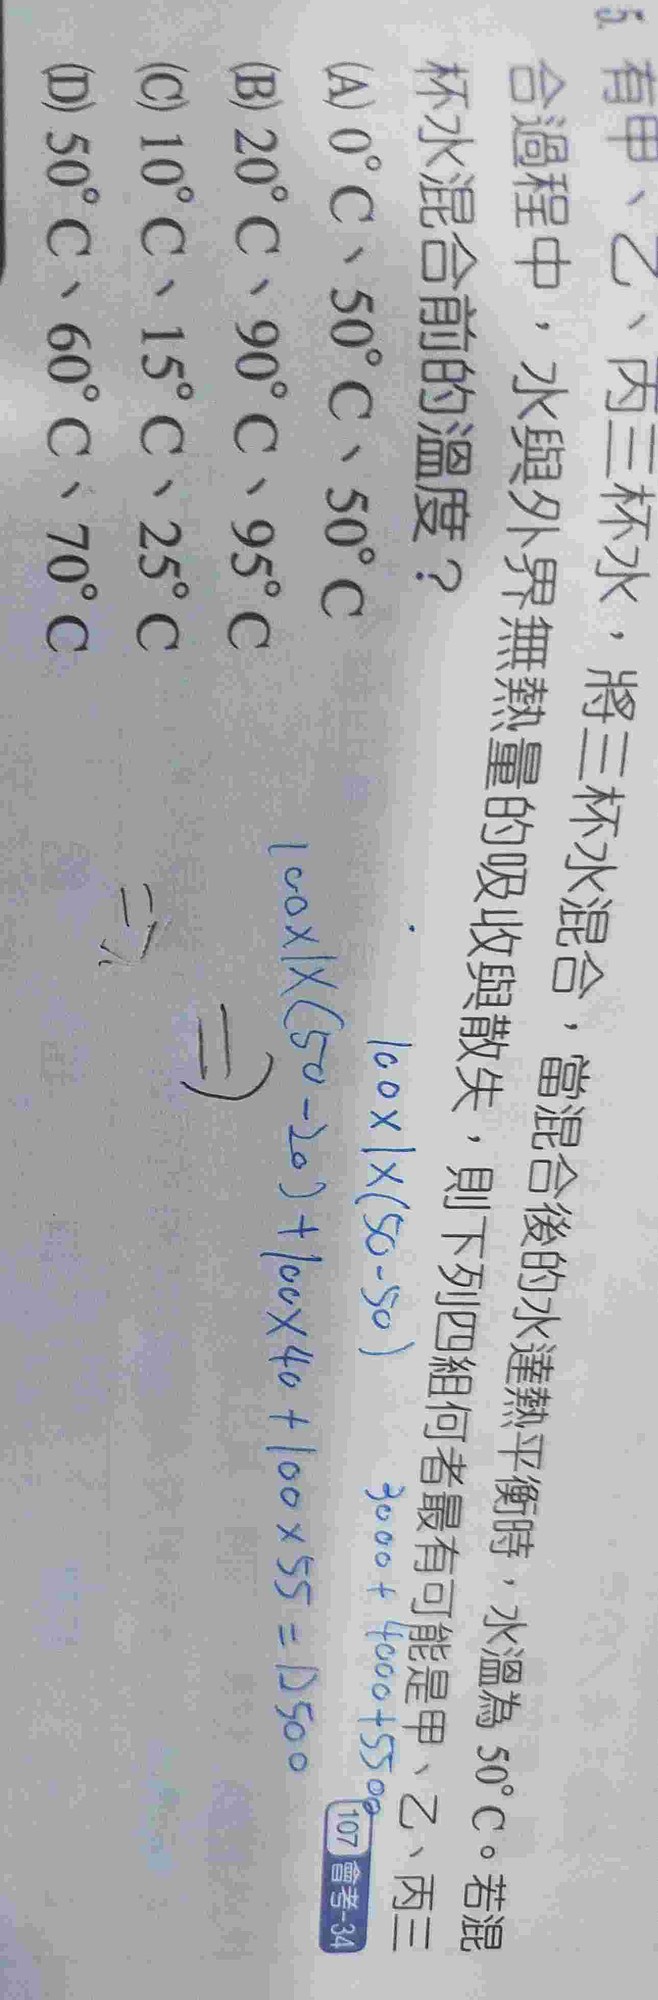 5. 有甲、乙、丙三杯水，將三杯水混合，當混合後的水達熱平衡時，水溫為 50°C。若混
合過程中，水與外界無熱量的吸收與散失，則下列四組何者最有可能是甲、乙、丙三
杯水混合前的溫度？
107 會考-34
(A) 0°C、50°C、50°C
(B) 20°C、90°C、95°C
(C) 10°C、15°C、25°C
(D) 50°C、60°C、70°C
100×1×(50-50)
3000+4000+5500
100×1×(50-20)+100×40+100×55=12500